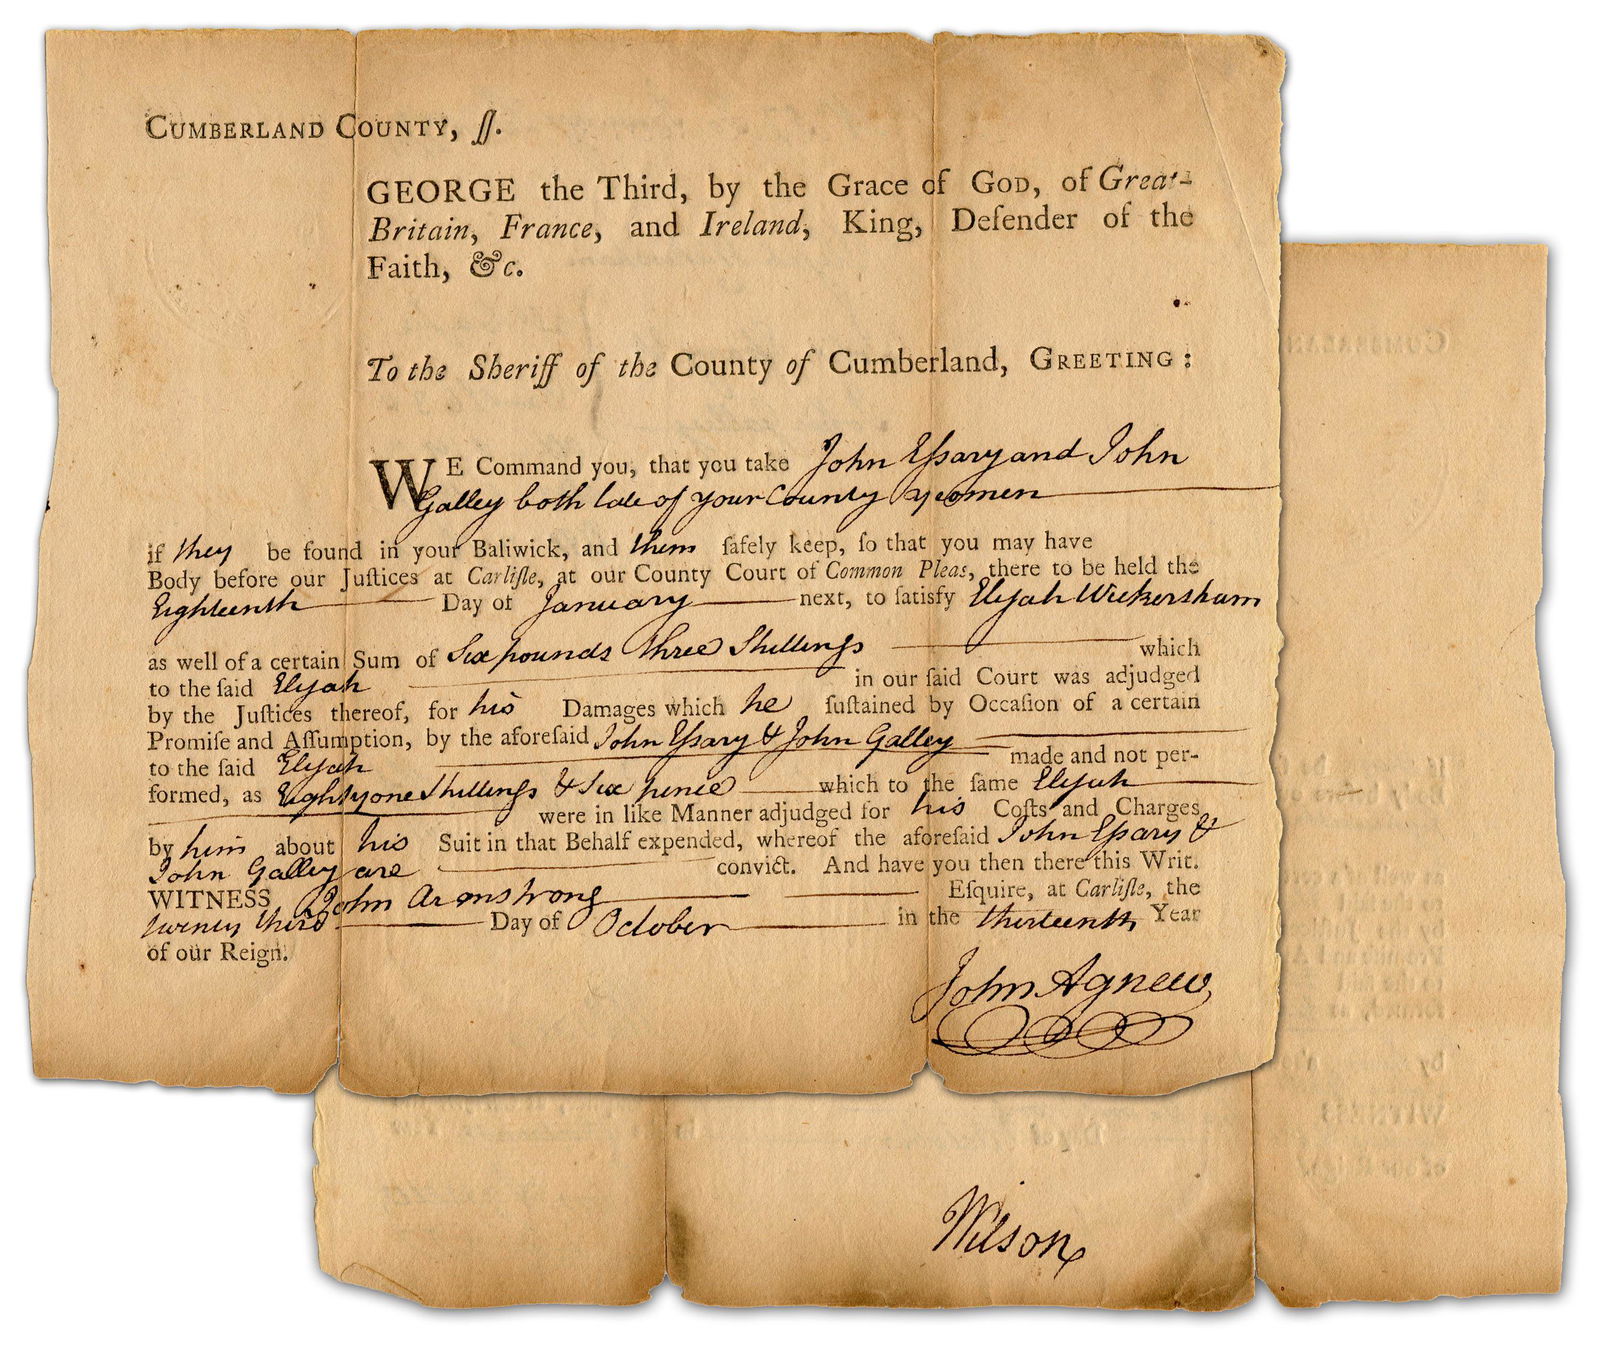 CUMBERLAND COUNTY, ſſ.
GEORGE the Third, by the Grace of GOD, of Great-
Britain, France, and Ireland, King, Defender of the
Faith, &c.
To the Sheriff of the County of Cumberland, GREETING:
WE Command you, that you take John Eſsary and John
Galley both late of your County yeomen
if they be found in your Baliwick, and them ſafely keep, ſo that you may have
Body before our Juſtices at Carliſle, at our County Court of Common Pleas, there to be held the
Eighteenth Day of January next, to ſatisfy Elijah Wickersham
as well of a certain Sum of Six pounds three Shillings which
to the ſaid Elijah in our ſaid Court was adjudged
by the Juſtices thereof, for his Damages which he ſuſtained by Occaſion of a certain
Promiſe and Aſſumption, by the aforeſaid John Eſsary & John Galley
to the ſaid Elijah made and not per-
formed, as Eighty one Shillings & Six pence which to the ſame Elijah
were in like Manner adjudged for his Coſts and Charges
by him about his Suit in that Behalf expended, whereof the aforeſaid John Eſsary &
John Galley are convict. And have you then there this Writ.
WITNESS John Armstrong Eſquire, at Carliſle, the
twenty third Day of October in the thirteenth Year
of our Reign.
John Agnew
Wilson